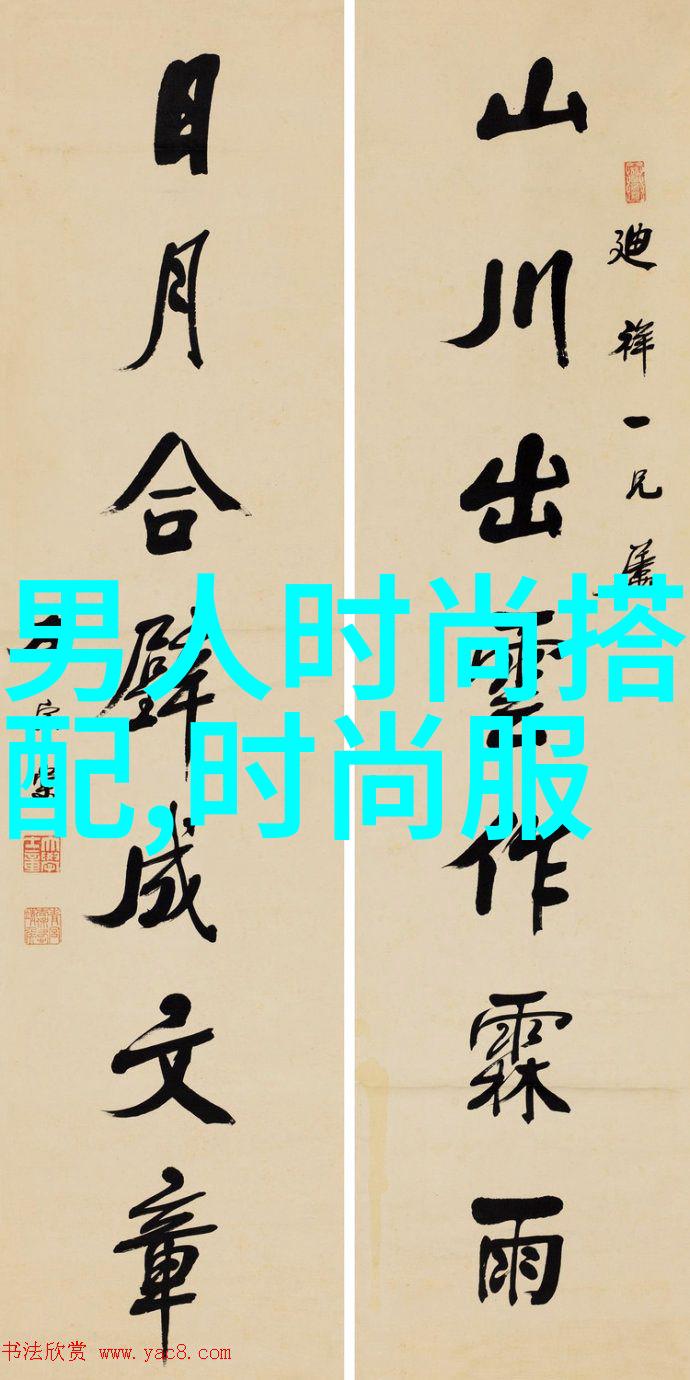 迪祥一兄
山川出雲作霖雨
日月合璧成文章
男人时尚搭
配,时尚服
书法欣赏 www.yac8.com